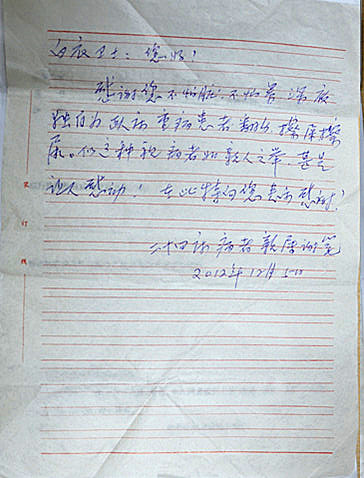 白衣卫士：您好！
感谢您不怕脏、不怕累深夜
独自为卧病重病患者翻身、擦屎擦
尿。你这种视病者如亲人之举，甚是
让人感动！在此特向您表示感谢！
二十四床病者亲属谢笔
2012年12月5日
装订线